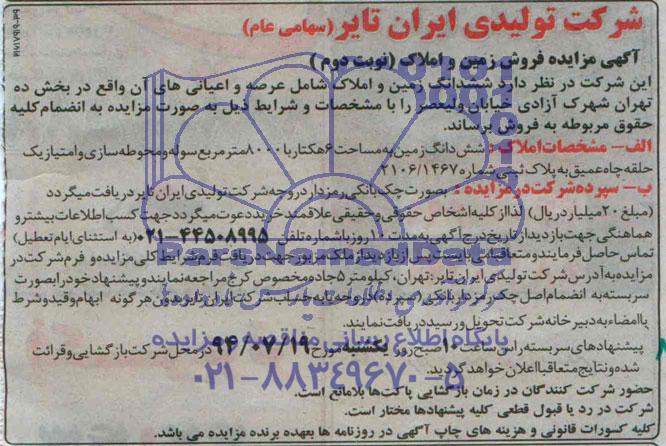 شرکت تولیدی ایران تایر (سهامی عام)
آگهی مزایده فروش زمین و املاک (نوبت دوم)
این شرکت در نظر دارد ششدانگ زمین و املاک شامل عرصه و اعیانی های آن واقع در بخش ده
تهران شهرک آزادی خیابان ولیعصر را با مشخصات و شرایط ذیل به صورت مزایده به انضمام کلیه
حقوق مربوطه به فروش برساند.
الف- مشخصات املاک: شش دانگ زمین به مساحت ۶ هکتار با ۸۰۰۰ متر مربع سوله و محوطه سازی و امتیاز یک
حلقه چاه عمیق به پلاک ثبتی شماره ۲۱۰۶/۱۴۶۷
ب- سپرده شرکت در مزایده: بصورت چک بانکی رمزدار در وجه شرکت تولیدی ایران تایر دریافت میگردد
(مبلغ ۲۰ میلیارد ریال) لذا از کلیه اشخاص حقوقی و حقیقی علاقمند خرید دعوت میگردد جهت کسب اطلاعات بیشتر و
هماهنگی جهت بازدید از تاریخ درج آگهی به مدت ۱۰ روز با شماره تلفن ۴۴۵۰۸۹۹۵-۰۲۱ (به استثنای ایام تعطیل)
تماس حاصل فرمایند و متعاقبا می بایست پس از بازدید از ملک مزبور جهت دریافت فرم شرایط کلی مزایده و فرم شرکت در
مزایده به آدرس شرکت تولیدی ایران تایر: تهران، کیلومتر ۵ جاده مخصوص کرج مراجعه نمایند و پیشنهاد خود را بصورت
سربسته به انضمام اصل چک رمزدار بانکی (سپرده) در وجه یا به حساب شرکت ایران تایر بدون هر گونه ابهام و قید و شرط
با امضاء به دبیرخانه شرکت تحویل و رسید دریافت نمایند.
پیشنهادهای سربسته راس ساعت ۱۰ صبح روز یکشنبه مورخ ۹۴/۰۷/۱۹ در محل شرکت بازگشایی و قرائت
شده و نتایج متعاقبا اعلان خواهد گردید.
حضور شرکت کنندگان در زمان بازگشایی پاکت‌ها بلامانع است.
شرکت در رد یا قبول قطعی کلیه پیشنهادها مختار است.
کلیه کسورات قانونی و هزینه های چاپ آگهی در روزنامه ها بعهده برنده مزایده می باشد.
پایگاه اطلاع رسانی مناقصه مزایده
۰۲۱-۸۸۳۴۹۶۷۰-۵